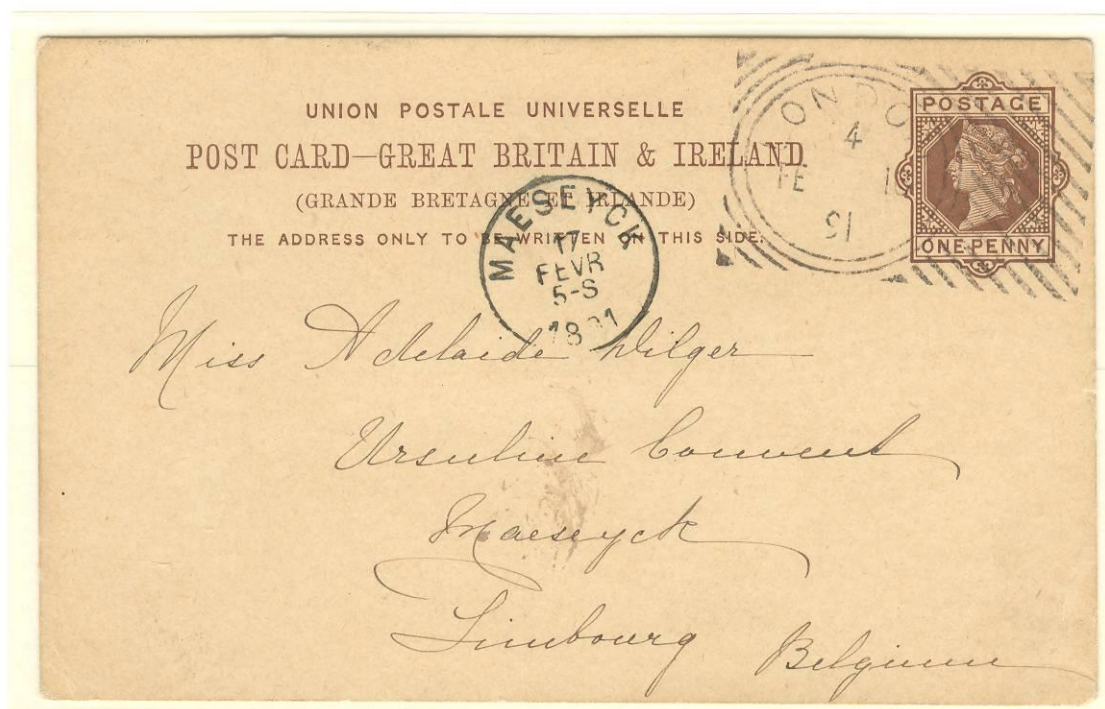 UNION POSTALE UNIVERSELLE
POST CARD—GREAT BRITAIN & IRELAND
(GRANDE BRETAGNE ET IRLANDE)
THE ADDRESS ONLY TO BE WRITTEN ON THIS SIDE.
POSTAGE
ONE PENNY
4
FE
91
MAESEYCK
17
FEVR
5-S
Miss Adelaide Dilger
Ursuline Convent
Maeseyck
Limbourg Belgium